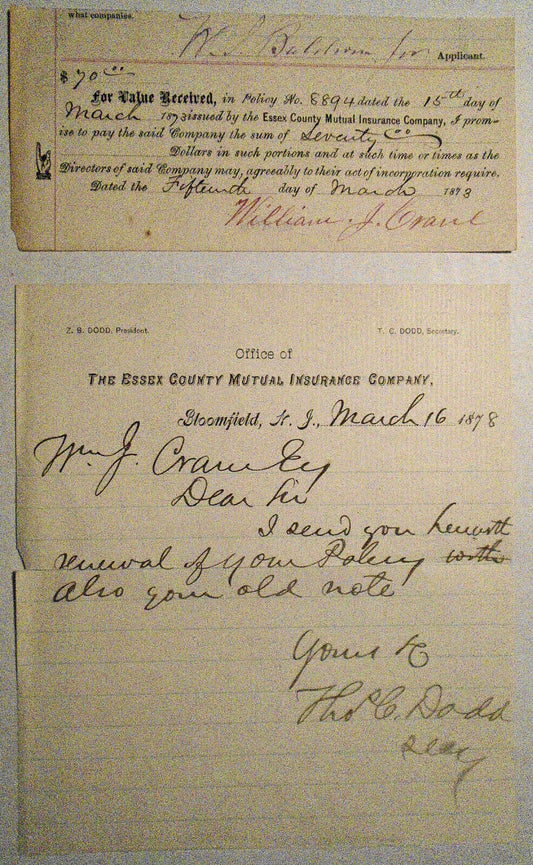 what companies.
W. J. Baldwin for Applicant.
$ 70 00
For Value Received, in Policy No. 8894 dated the 15th day of
March 1873 issued by the Essex County Mutual Insurance Company, I prom-
ise to pay the said Company the sum of Seventy 00
Dollars in such portions and at such time or times as the
Directors of said Company may, agreeably to their act of incorporation require.
Dated the Fifteenth day of March 1873
William J. Crane
Z. B. DODD, President. T. C. DODD, Secretary.
Office of
THE ESSEX COUNTY MUTUAL INSURANCE COMPANY,
Bloomfield, N. J., March 16 1878
Wm J. Crane Esq
Dear Sir
I send you herewith
renewal of your Policy with
also your old note
Yours &c
Thos C. Dodd
Secy